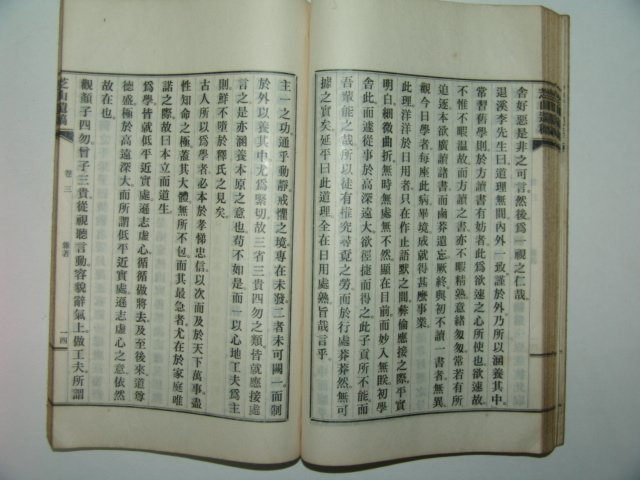 芝山遺稿
舍好惡是非之可言然後爲一視之仁哉。
退溪李先生曰道理無間內外一致謹於外乃所以涵養其中。
常習舊學則於方讀書有妨者此爲欲速之心所使也欲速故。
不惟不暇溫故而方讀之書亦不暇精熟意緖匆匆常若有所
迫逐本欲廣讀諸書而鹵莽遺忘厥終與初不讀一書者無異。
觀今日學者每座此病畢境成就得甚麽事業。
此理洋洋於日用者只在作止語默之間彝倫應接之際平實
明白細微曲折無時無處無不然顯在目前而妙入無眹初學
舍此而遽從事於高深遠大欲徑捷而得之此子貢所不能而
吾輩能之哉所以徒有推究尋覓之勞而於行處莽莽然無可
據之實矣延平曰此道理全在日用處熟旨哉言乎。
主一之功通乎動靜戒懼之境專在未發二者未可闕一而制
於外以養其中尤爲緊切故三省三貴四勿之類皆就應接處
言之是亦涵養本原之意也苟不如是而一以心地工夫爲主
則鮮不墮於釋氏之見矣。
古人所以爲學者必本於孝悌忠信以次而及於天下萬事盡
性知命之極蓋其大體無所不包而其最急者尤在於家庭唯
諾之際故曰本立而道生。
爲學皆就低平近實處遜志虛心循循做將去及至後來道尊
德盛極於高遠深大而所謂低平近實處遜志虛心之意依然
故在也。
觀顔子四勿曾子三貴從視聽言動容貌辭氣上做工夫所謂
芝山遺稿 卷三 雜著 一四